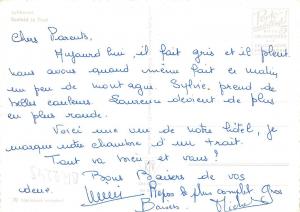 Chers Parents,
Aujourd'hui, il fait gris et il pleut
nous avons quand même fait ce matin
un peu de montagne. Sylvie, prend de
belles couleurs. Laurence devient de plus
en plus ronde.
Voici une vue de notre hôtel, je
marque notre chambre d'un trait.
Tout va bien et vous?
Bons Baisers de vos
deux. Repos le plus complet Gros
Baisers